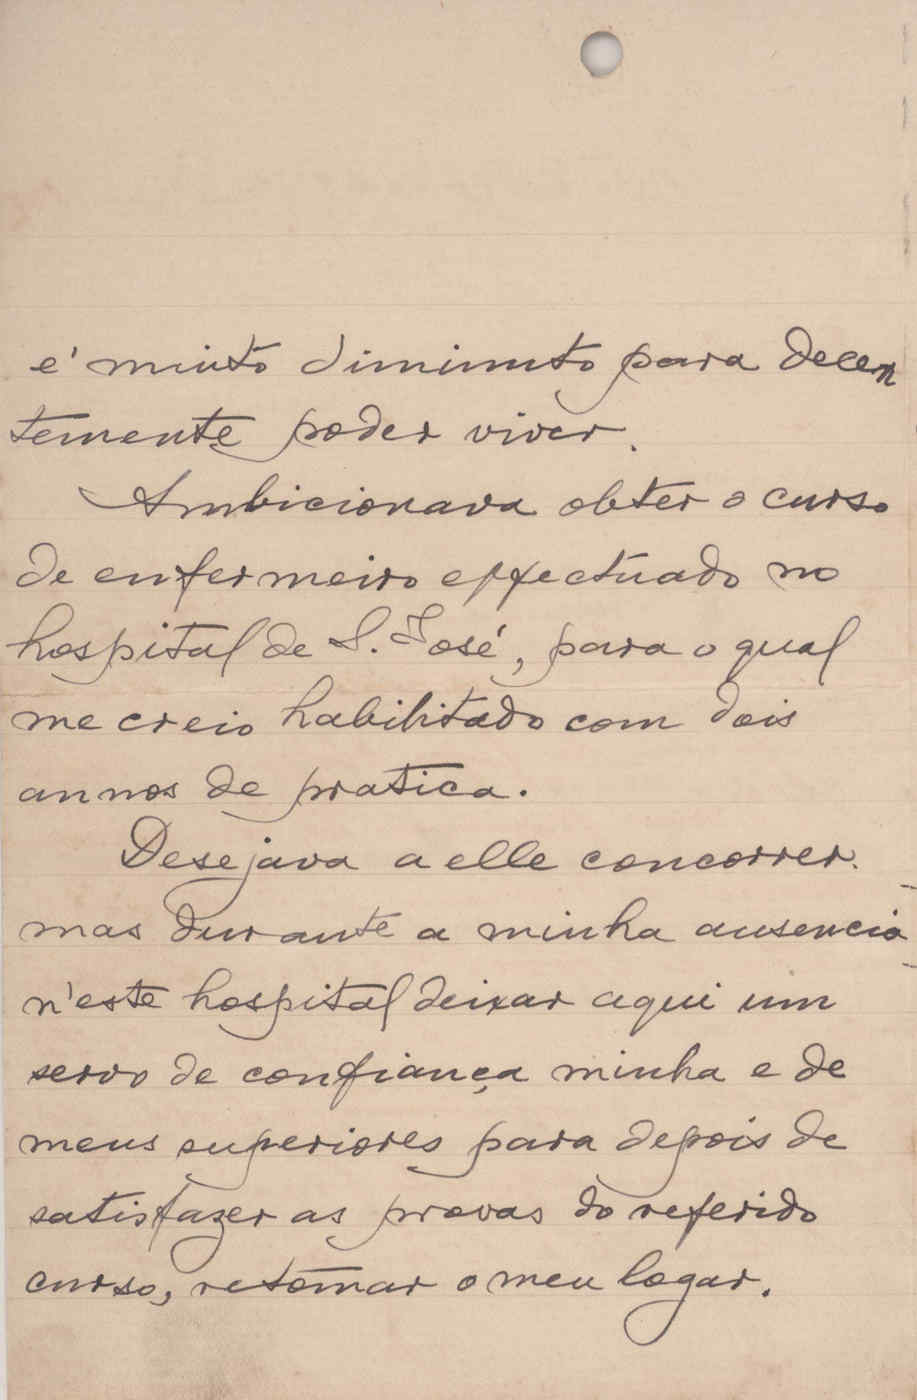 é muito diminuto para decen
temente poder viver.
Ambicionava obter o curso
de enfermeiro effectuado no
hospital de S. José, para o qual
me creio habilitado com dois
annos de pratica.
Desejava a elle concorrer.
mas durante a minha ausencia
n'este hospital deixar aqui um
servo de confiança minha e de
meus superiores para depois de
satisfazer as provas do referido
curso, retomar o meu logar.